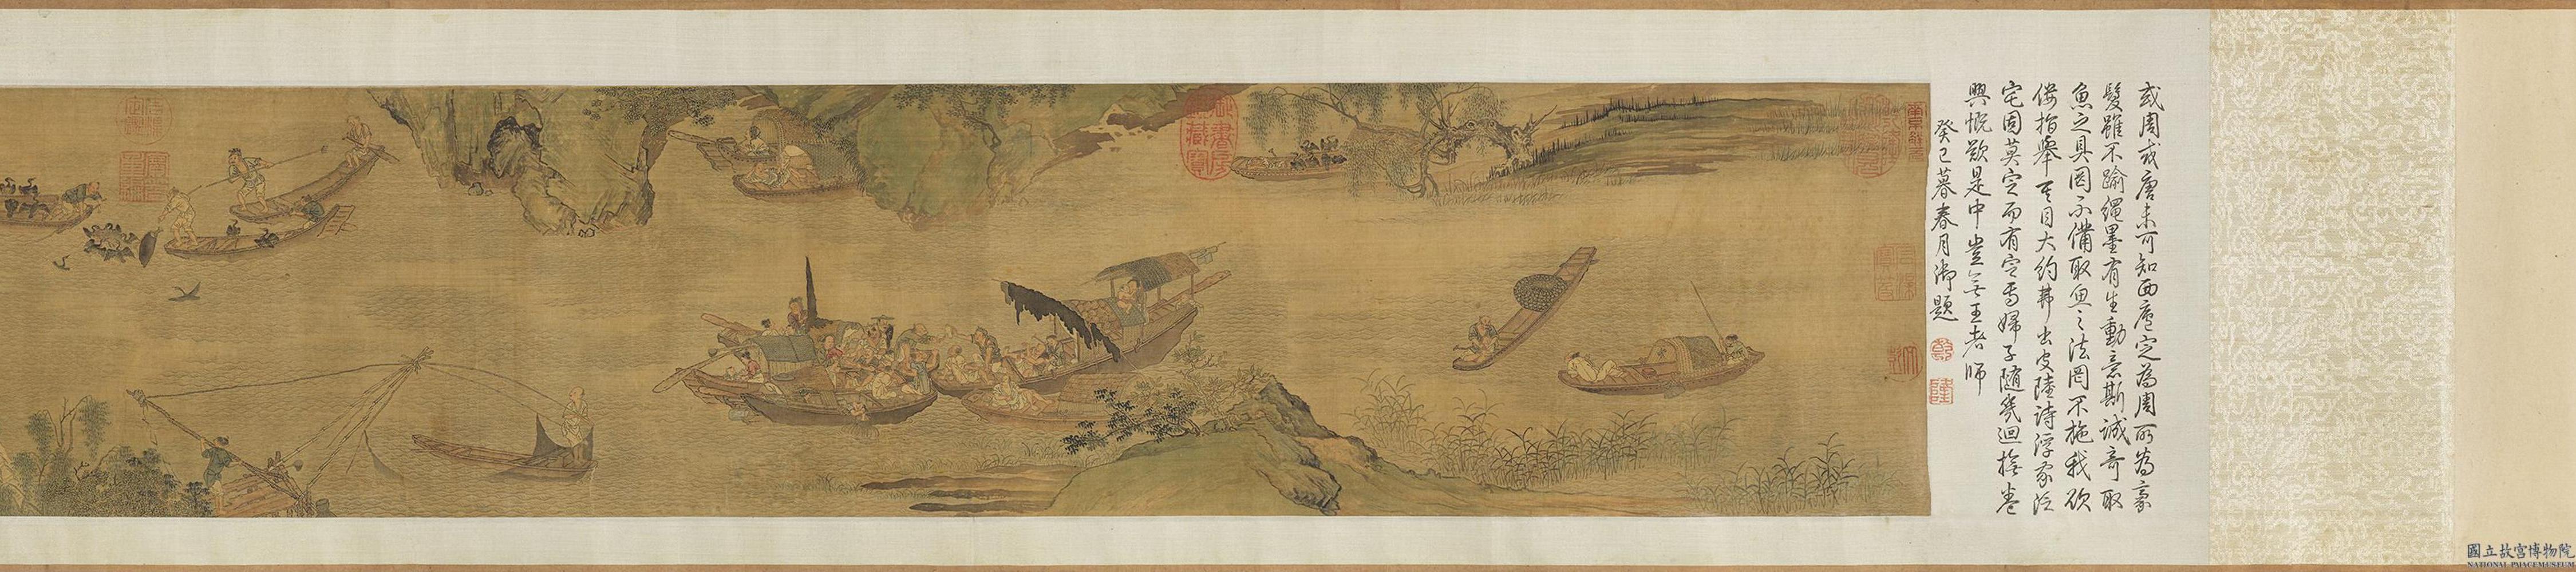 或周或唐未可知西廬定為周昉為豪
髮雖不踰繩墨有生動意斯誠奇取
魚之具圖不備取魚之法罔不施我欲
倭指舉其目大約弗出皮陸詩浮家泛
宅固莫定而有定焉婦子隨幾迴撫卷
興慨歎是中豈無王者師
癸巳暮春月御題
乾
隆
國立故宮博物院
NATIONAL PALACE MUSEUM